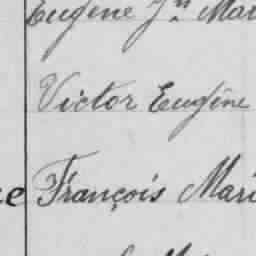 Eugène Jn Mar
Victor Eugène
ce François Mari